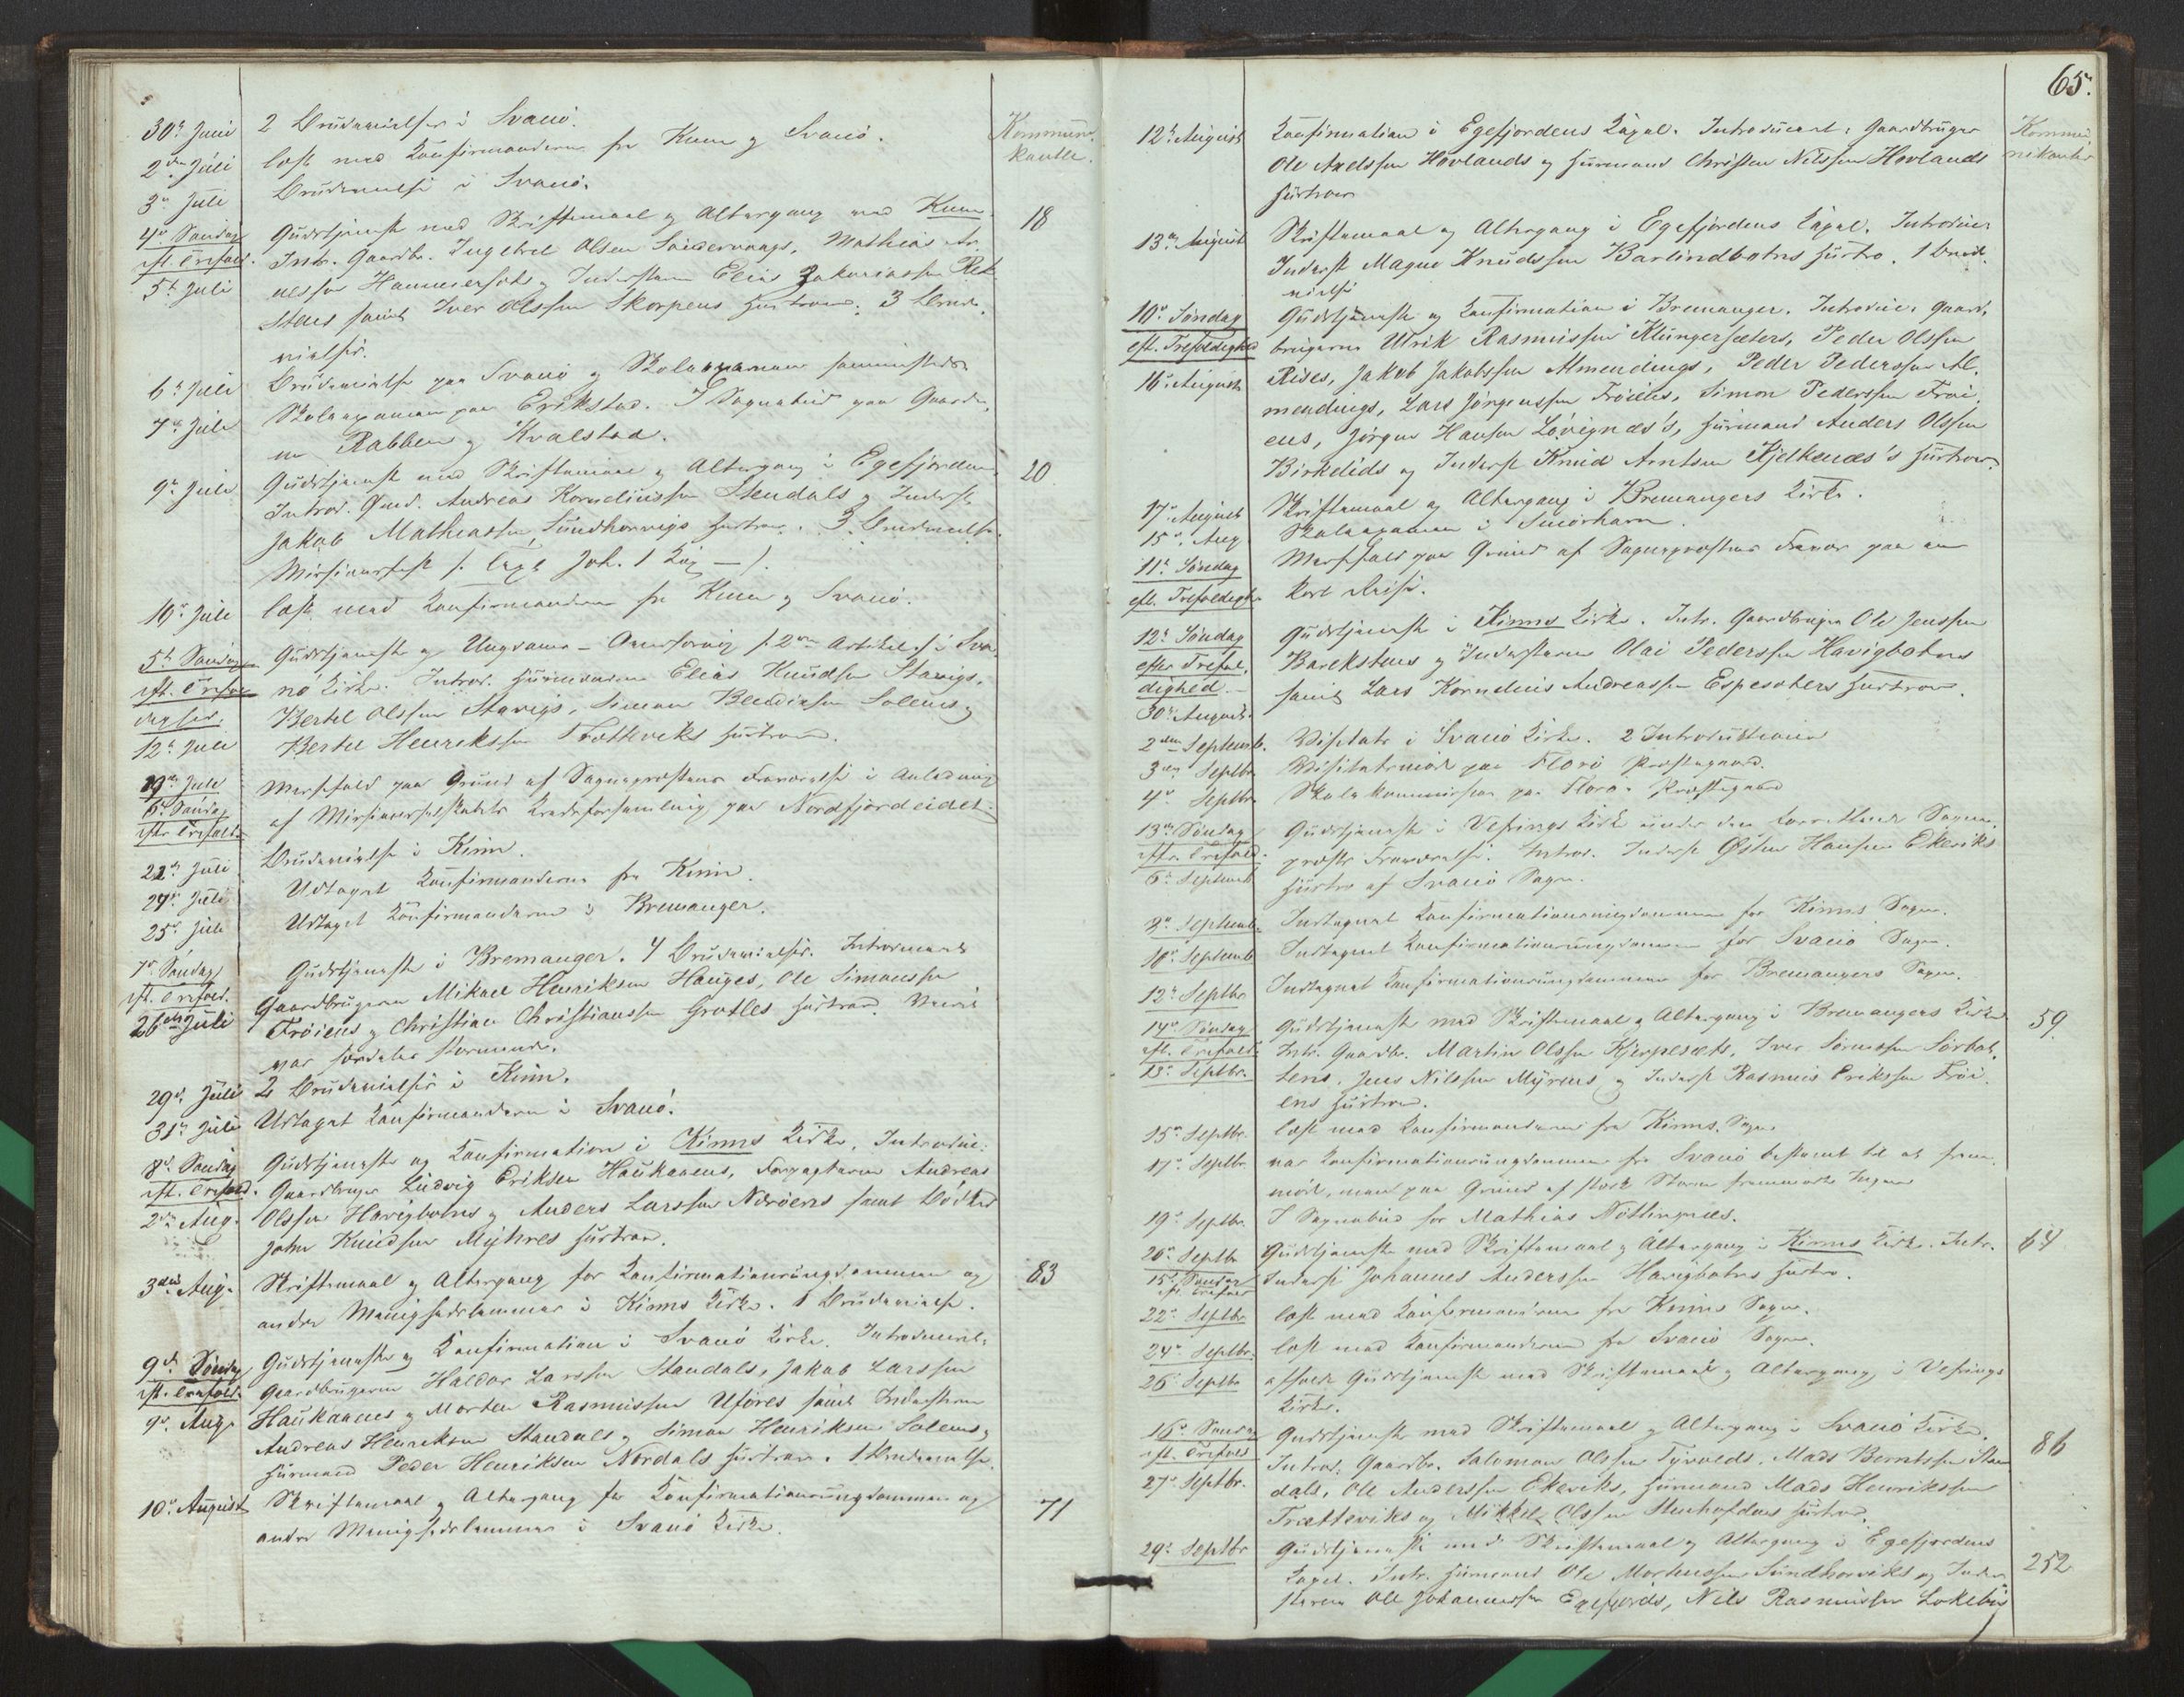 30te Juni 2 Brudevielser i Svanö. Kommuni-
2den Juli læst med Konfirmanderne fra Kinn og Svanö. kanter.
3die Juli Brudevielse i Svanö.
4de Søndag Gudstjeneste med Skriftemaal og Altergang ved Kinn. 18
eft. Trefold. Intr. Gaardbr. Ingebret Olsen Søndervaags, Mathias An-
5te Juli nessen Hammersets og Inderstene Elias Zakariassen Rek-
stens samt Iver Olssen Skorpens Hustruer. 3 Brude-
vielser.
6te Juli Brudevielse paa Svanö og Skoleexamen sammesteds.
7de Juli Skoleexamen paa Erikstad. I Sognebud paa Gaarde-
ne Rabben og Kvalstad.
9de Juli Gudstjeneste med Skriftemaal og Altergang i Egefjorden. 20
Introd. Gmd. Andreas Korneliussen Stendals og Inderst
Jakob Mathiassen Sundhorvigs Hustruer. 3 Brudevielser.
Missionsfest
10de Juli læst med Konfirmanderne fra Kinn og Svanö.
5te Søndag Gudstjeneste og Ungdoms-Overhøring /: 2den Artikel :/ i Sva-
eft. Trefol- nö Kirke. Introd. Husmændene Elias Knudsen Stavigs,
dighed. Bertel Olssen Stavigs, Simon Bendiksen Solems og
12te Juli Bertel Henriksen Trætteviks Hustruer.
19de Juli Messefald paa Grund af Sognepræstens Fraværelse i Anledning
6te Søndag af Missionsselskabets Kredsforsamling paa Nordfjordeidet.
eftr. Trefold.
22de Juli Brudevielse i Kinn.
24de Juli Udtaget Konfirmanderne fra Kinn.
25de Juli Udtaget Konfirmanderne i Bremanger.
7de Søndag Gudstjeneste i Bremanger. 4 Brudevielser. Introduceret
eft. Trefold. Gaardbrugerne Mikael Henriksen Hauges, Ole Simonssen
26de Juli Fröiens og Christian Christianssen Grotles Hustruer. Veiret
var særdeles stormende.
29de Juli 2 Brudevielser i Kinn.
31te Juli Udtaget Konfirmanderne i Svanö.
8de Søndag Gudstjeneste og Konfirmation i Kinns Kirke. Introduc:
eft. Trefold. Gaardbruger Ludvig Eriksen Haukaaens, Forpagterne Andreas
2den Aug. Olssen Havigbotns og Anders Larssen Nærøens samt Bödker
John Knudsen Myhres Hustruer.
3die Aug. Skriftemaal og Altergang for Konfirmationsungdommen og 83
andre Menighedslemmer i Kinns Kirke. 1 Brudevielse.
9de Søndag Gudstjeneste og Konfirmation i Svanö Kirke. Introduceret:
eft. Trefold. Gaardbrugerne Haldor Larssen Standals, Jakob Larssen
9de Aug. Haukaaens og Morten Rasmussen Uföres samt Inderstene
Andreas Henriksen Standals og Simon Henriksen Solems,
Husmand Peder Henriksen Nordals Hustruer. 1 Brudevielse.
10de August Skriftemaal og Altergang for Konfirmationsungdommen og 71
andre Menighedslemmer i Svanö Kirke.
65.
12te August Konfirmation i Egefjordens Kapel. Introduceret: Gaardbruger Kommu-
Ole Axelssen Hovlands og Husmand Christen Nilssen Hovlands nikanter
Hustruer
13de August Skriftemaal og Altergang i Egefjordens Kapel. Introduc:
Inderst Magne Knudssen Barlindbotns Hustru. 1 Brude-
vielse
10de Søndag Gudstjeneste og Konfirmation i Bremanger. Introduc: Gaard-
eft. Trefoldighed brugerne Ulrik Rasmussen Klungersæters, Peder Olssen
16de August Rises, Jakob Jakobssen Almendings, Peder Pederssen Al-
mendings, Lars Jörgenssen Fröiens, Simon Pederssen Fröi-
ens, Jörgen Hansen Lövignæs's, Husmand Anders Olssen
Birkelids og Inderst Knud Arntsen Kjelkenæs's Hustruer.
17de August Skriftemaal og Altergang i Bremangers Kirke.
15de Aug. Skoleexamen i Smörhavn.
11te Søndag Messefald paa Grund af Sognepræstens Fravær paa en
eft. Trefoldigh. kort Reise.
12te Søndag Gudstjeneste i Kinns Kirke. Intr. Gaardbruger Ole Jenssen
efter Trefol- Barekstens og Inderstene Olai Pederssen Havigbotns
dighed. samt Lars Kornelius Andreassen Espesæters Hustruer.
30te August.
2den Septemb. Visitats i Svanö Kirke. 2 Introduktioner
3die Septbr. Visitatsmöde paa Florö Præstegaard.
4de Septbr. Skolekommission paa Florö Præstegaard
13de Søndag Gudstjeneste i Vefrings Kirke under den Sogne-
eftr. Trefold. præsts Fraværelse. Introd. Inderst Östen Hansen Ekeviks
6te Septemb. Hustru af Svanö Sogn.
8de Septemb. Indtegnet Konfirmationsungdommen for Kinns Sogn.
10de Septemb. Indtegnet Konfirmationsungdommen for Svanö Sogn.
12te Septbr Indtegnet Konfirmationsungdommen for Bremangers Sogn.
14de Søndag Gudstjeneste med Skriftemaal og Altergang i Bremangers Kirke 59.
eft. Trefold. Intr. Gaardbr. Martin Olssen Kjerpesæts, Iver Sörenssen Sörbot-
13de Septbr. tens, Jens Nilssen Myrens, og Inderst Rasmus Erikssen Fröi-
ens Hustruer.
15de Septbr. læst med Konfirmanderne fra Kinns Sogn
17de Septbr. var Konfirmationsungdommen fra Svanö bestemt til at frem-
møde, men paa Grund af stærk Storm fremmødte Ingen
19de Septbr. I Sognebud for Mathias Nöttingnæs.
20de Septbr Gudstjeneste med Skriftemaal og Altergang i Kinns Kirke. Intr. 64
15de Søndag Inderst Johannes Anderssen Havigbotns Hustru.
eft. Trefold
22de Septbr læst med Konfirmanderne fra Kinns Sogn.
24de Septbr. læst med Konfirmanderne fra Svanö Sogn.
26de Septbr afholdt Gudstjeneste med Skriftemaal og Altergang i Vefrings
Kirke.
16de Søndag Gudstjeneste med Skriftemaal og Altergang i Svanö Kirke. 86
eft. Trefold Introd: Gaardbr. Salomon Olssen Tyvolds, Mads Berntssen Stan-
27de Septbr. dals, Ole Anderssen Ekeviks, Husmand Mads Henrikssen
Trætteviks og Mikkel Olssen Stenhofdens Hustruer.
29de Septbr Gudstjeneste med Skriftemaal og Altergang i Egefjordens 252
Kapel. Intr. Husmand Ole Mortenssen Sundhorviks og Inder-
stene Ole Johannessen Egefjords, Nils Rasmussen Lökebö